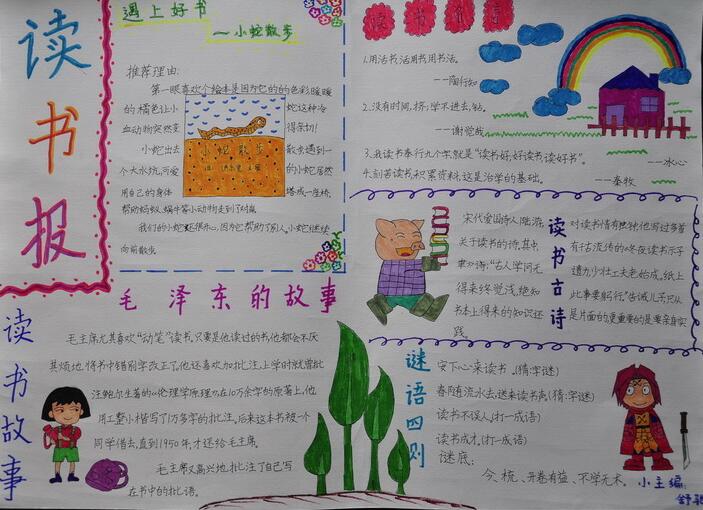 读书报
遇上好书
——小蛇散步
推荐理由:
第一眼喜欢个绘本是因为它的的色彩,暖暖
的橘色让小蛇这种冷
血动物突然变得亲切!
小蛇出去散步遇到一
个大水坑,可爱的小蛇居然
用自己的身体搭成一座桥,
帮助蚂蚁、蜗牛等小动物走到了对面
我们的小蛇还很开心,因为它帮助了别人,小蛇继续
向前散步。
小蛇散步
读书
1.用活书,活用书,用书活。
——陶行知
2.没有时间,挤;学不进去,钻。
——谢觉哉
3.我读书奉行九个字,就是“读书好,好读书,读好书”。
——冰心
4.刻苦读书,积累资料,这是治学的基础。
——秦牧
读书古诗
宋代爱国诗人陆游,
关于读书的诗,其中
“古人学问无
得来终觉浅,绝知
书本上得来的知识还
践。
对读书情有独钟,他写过多首
有千古流传的《冬夜读书示子
遗力,少壮工夫老始成。纸上
此事要躬行。”告诫儿子只从
是片面的,更重要的是要亲身实
毛泽东的故事
读书故事
毛主席尤其喜欢“动笔”读书,只要是他读过的书他都会不厌
其烦地将书中错别字改正了。他还喜欢加批注,上学时就曾批
注鲍尔生着的《伦理学原理》,在10万余字的原著上,他
用工整小楷写了1万多字的批注。后来这本书被一个
同学借去,直到1950年,才还给毛主席。
毛主席又高兴地批注了自己写
在书中的批语。
谜语四则
安下心来读书。(猜字谜)
春随流水去,送来读书声(猜字谜)
读书不误人(打一成语)
读书成才。(打一成语)
谜底:
今、梳、开卷有益、不学无术。
小主编: